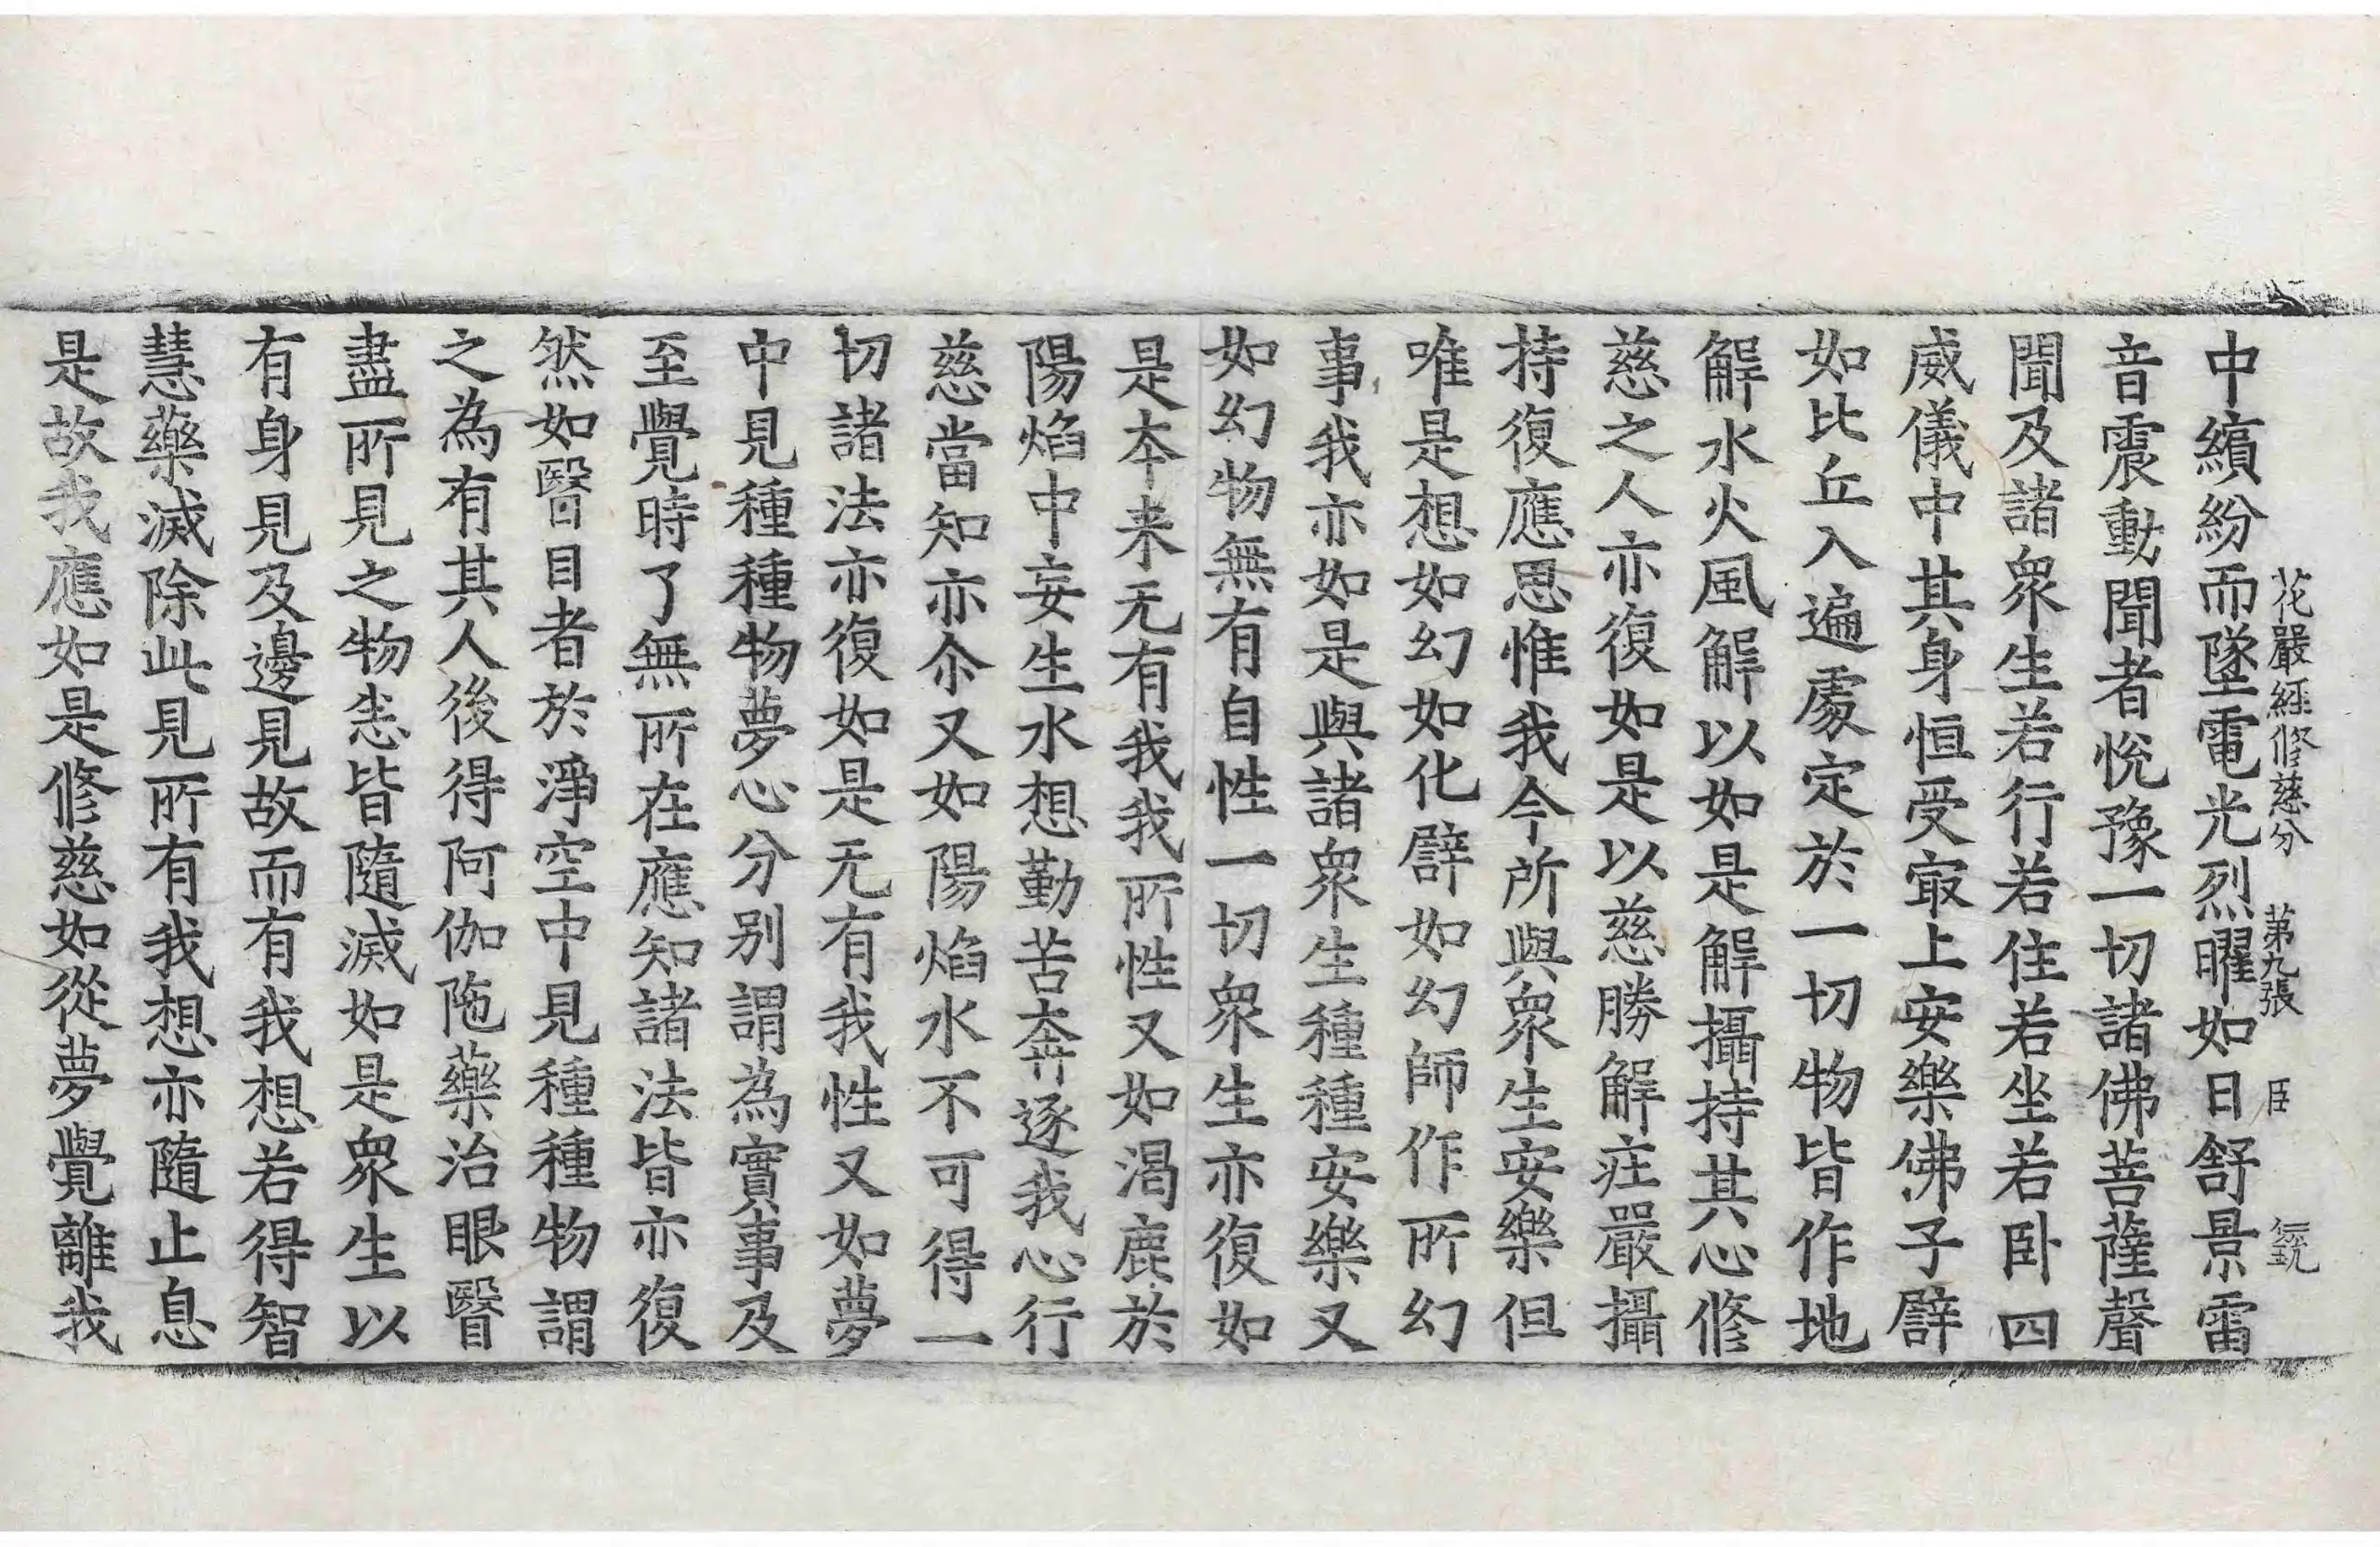 花嚴經修慈分 第九張 臣
中繽紛而墜電光烈曜如日舒景雷
音震動聞者悅豫一切諸佛菩薩聲
聞及諸衆生若行若住若坐若卧四
威儀中其身恒受㝡上安樂佛子譬
如比丘入遍處定於一切物皆作地
解水火風解以如是解攝持其心修
慈之人亦復如是以慈勝解莊嚴攝
持復應思惟我今所與衆生安樂但
唯是想如幻如化譬如幻師作所幻
事我亦如是與諸衆生種種安樂又
如幻物無有自性一切衆生亦復如
是本来无有我我所性又如渴鹿於
陽焰中妄生水想勤苦奔逐我心行
慈當知亦尒又如陽焰水不可得一
切諸法亦復如是无有我性又如夢
中見種種物夢心分別謂為實事及
至覺時了無所在應知諸法皆亦復
然如瞖目者於淨空中見種種物謂
之為有其人後得阿伽陁藥治眼瞖
盡所見之物悉皆隨滅如是衆生以
有身見及邊見故而有我想若得智
慧藥滅除此見所有我想亦隨止息
是故我應如是修慈如從夢覺離我